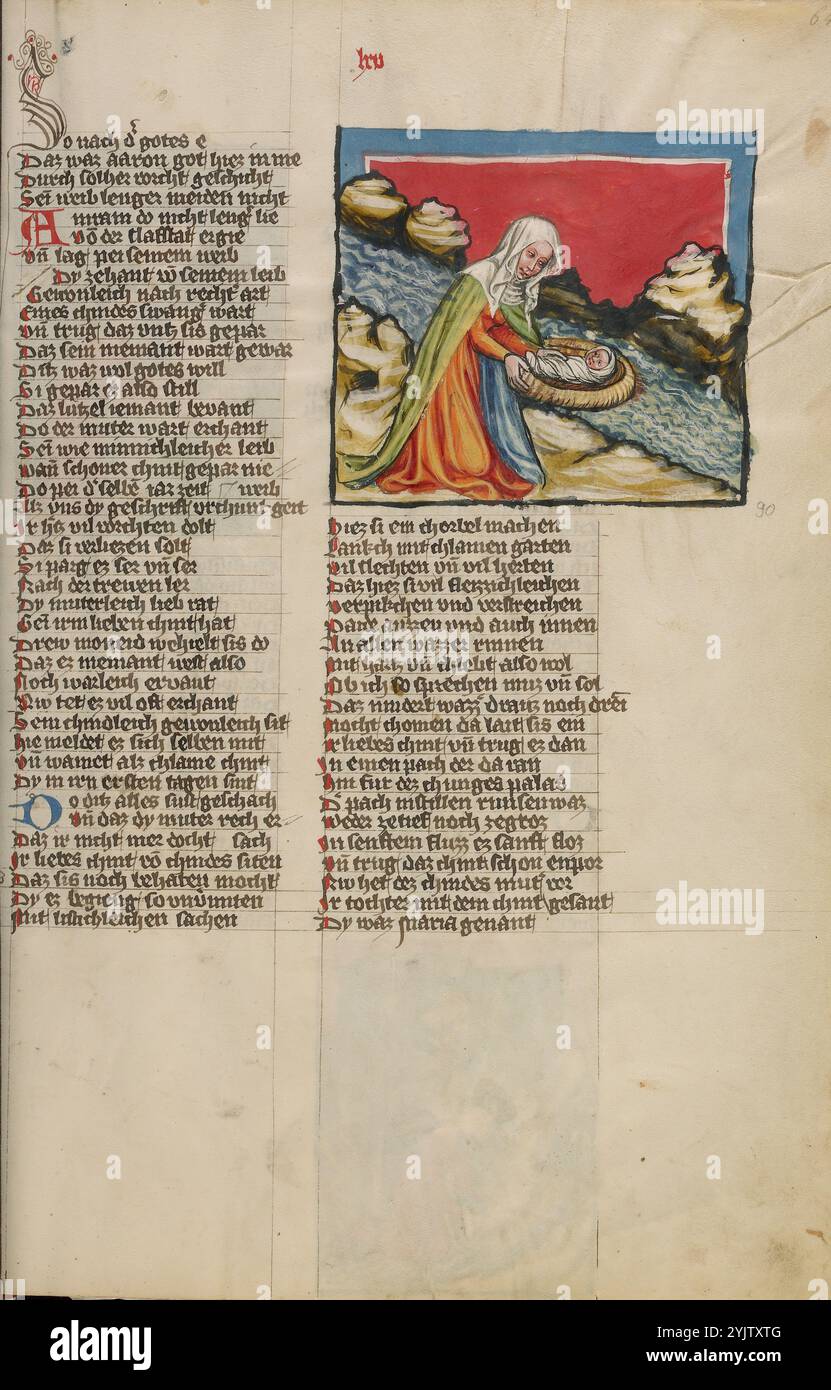 lxv
So nach d' gotes e
Daz waz aaron got hiez in me
Durch solher vorcht geschicht
Sein weib lenger meiden nicht
Amram do nicht leng' lie
Von der
Vn lag pei seinem weib
Dy zehant von seinem leib
Gewonleich nach recht' art
Eines chindes swang' wart
Vn trug daz vntz sis gepar
Daz sein niemant wart gewar
Ditz waz wol gotes will
Si gepar ez also still
Daz lutzel iemant bevant
Do der muter wart erchant
Sein wie minnichleicher leib
Wan schoner chint gepar nie
Do pei d' selben iar zeit weib
Alz vns dy geschrift vrchunt geit
Ir h's vil vorchten dolt
Daz si verliezen solt
Si parg ez ser vn ser
Nach der trewen ler
Dy muterleich lieb rat
Gein irm lieben chint hat
Drew moneid wehielt sis do
Daz ez niemant west also
Noch warleich ervant
Nw tet ez vil oft erchant
Sein chindleich gewonleich sit
Hie meldet ez sich selben mit
Vn wainet alz chlaine chint
Dy in irn ersten tagen sint
Do ditz alles sust geschach
Vn daz dy muter rech er
Daz ir nicht mer docht sach
Ir liebes chint von chindes siten
Daz sis noch behalten mocht
Dy ez begieng so vnuermiten
Mit listichleichen sachen
Hiez si ein chorbel machen
mit chlainen garten
Vil slechten vn vil herten
Daz hiez si vil fleizzichleichen
Verpikchen vnd verstreichen
auzzen vnd auch innen
An allen wazzer rinnen
Mit hartz vn also wol
Ob ich so sprechen muz vn sol
Daz nindert wazz' drautz noch drein
Mocht chomen da lait sis ein
Ir liebes chint vn trug ez dan
In einen pach der da ran
Hin fur dez chunges palas
D' pach in stillen runsen waz
Weder ze tief noch ze groz
In senftem fluzz ez sanft floz
Vn trug daz chint schon enpor
Nw het dez chindes mut' vor
Ir tochter mit dem chint gesant
Dy waz Maria genant
90
alamy
Image ID: 2YJTXTG
www.alamy.com